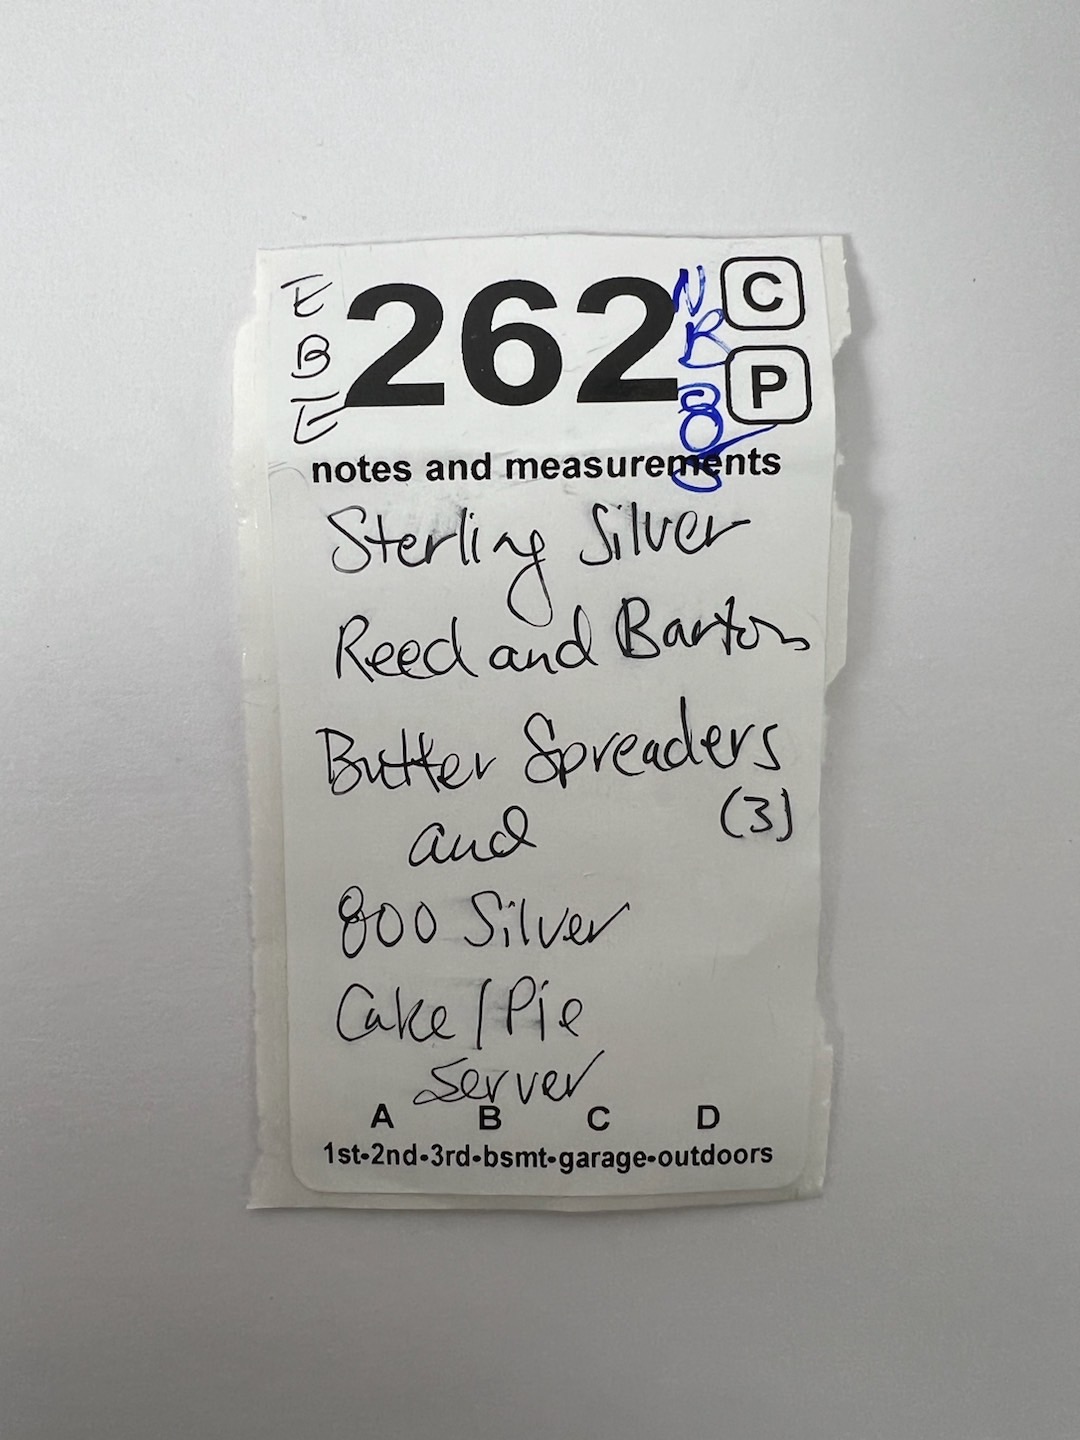 E
B
E
262
N
B
C
P
notes and measurements
Sterling Silver
Reed and Barton
Butter Spreaders
(3)
and
800 Silver
Cake/Pie
Server
A B C D
1st-2nd-3rd-bsmt-garage-outdoors